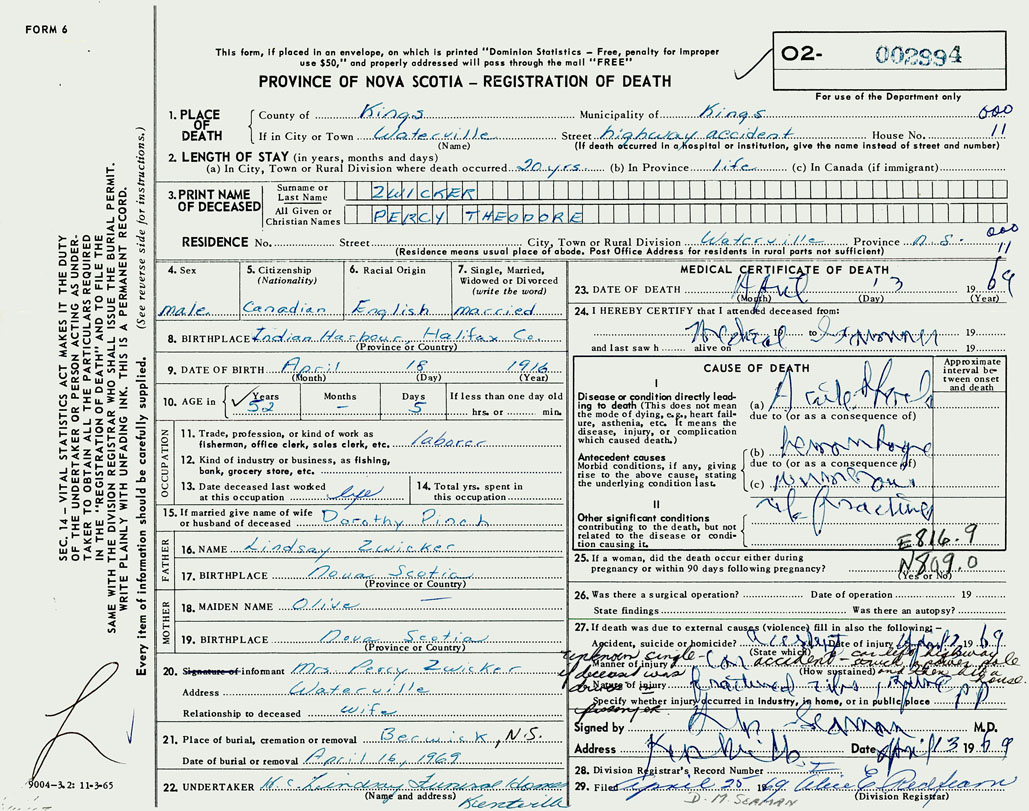 FORM 6
This form, if placed in an envelope, on which is printed "Dominion Statistics – Free, penalty for improper
use $50," and properly addressed will pass through the mail "FREE"
PROVINCE OF NOVA SCOTIA – REGISTRATION OF DEATH
O2- 002994
For use of the Department only
SEC. 14 – VITAL STATISTICS ACT MAKES IT THE DUTY
OF THE UNDERTAKER OR PERSON ACTING AS UNDER-
TAKER TO OBTAIN ALL THE PARTICULARS REQUIRED
IN THE "REGISTRATION OF DEATH" AND TO FILE THE
SAME WITH THE DIVISION REGISTRAR WHO SHALL ISSUE THE BURIAL PERMIT.
WRITE PLAINLY WITH UNFADING INK. THIS IS A PERMANENT RECORD.
Every item of information should be carefully supplied. (See reverse side for instructions.)
1. PLACE OF DEATH
County of Kings Municipality of Kings 000
If in City or Town Waterville Street highway accident House No. 11
(Name) (If death occurred in a hospital or institution, give the name instead of street and number)
2. LENGTH OF STAY (in years, months and days)
(a) In City, Town or Rural Division where death occurred 20 yrs. (b) In Province life (c) In Canada (if immigrant)
3. PRINT NAME OF DECEASED
Surname or Last Name ZWICKER
All Given or Christian Names PERCY THEODORE
RESIDENCE No. Street City, Town or Rural Division Waterville Province N.S. 000 11
(Residence means usual place of abode. Post Office Address for residents in rural parts not sufficient)
4. Sex male
5. Citizenship (Nationality) Canadian
6. Racial Origin English
7. Single, Married, Widowed or Divorced (write the word) married
8. BIRTHPLACE Indian Harbour, Halifax Co.
(Province or Country)
9. DATE OF BIRTH April 18 1916
(Month) (Day) (Year)
10. AGE in Years 52 Months – Days 5 If less than one day old hrs. or min.
OCCUPATION
11. Trade, profession, or kind of work as fisherman, office clerk, sales clerk, etc. laborer
12. Kind of industry or business, as fishing, bank, grocery store, etc.
13. Date deceased last worked at this occupation life
14. Total yrs. spent in this occupation
15. If married give name of wife or husband of deceased Dorothy Pinch
FATHER
16. NAME Lindsay Zwicker
17. BIRTHPLACE Nova Scotia
(Province or Country)
MOTHER
18. MAIDEN NAME Olive —
19. BIRTHPLACE Nova Scotia
(Province or Country)
20. Signature of informant Mrs. Percy Zwicker
Address Waterville
Relationship to deceased wife
21. Place of burial, cremation or removal Berwick, N.S.
Date of burial or removal April 16, 1969
22. UNDERTAKER W.C. Lindsay Funeral Home
(Name and address) Kentville
9004-3.2: 11-3-65
MEDICAL CERTIFICATE OF DEATH
23. DATE OF DEATH April 13 1969
(Month) (Day) (Year)
24. I HEREBY CERTIFY that I attended deceased from:
Medical 19 to Examiner 19
and last saw h alive on 19
CAUSE OF DEATH
Approximate interval between onset and death
I
Disease or condition directly leading to death (This does not mean the mode of dying, e.g., heart failure, asthenia, etc. It means the disease, injury, or complication which caused death.)
(a) Acute
due to (or as a consequence of)
Antecedent causes
Morbid conditions, if any, giving rise to the above cause, stating the underlying condition last.
(b) hemorrhage
due to (or as a consequence of)
(c)
II
Other significant conditions contributing to the death, but not related to the disease or condition causing it.
rib fractures
E816.9
25. If a woman, did the death occur either during pregnancy or within 90 days following pregnancy? N809.0
(Yes or No)
26. Was there a surgical operation? Date of operation 19
State findings Was there an autopsy?
27. If death was due to external causes (violence) fill in also the following:–
Accident, suicide or homicide? accident Date of injury April 13 69
(State which) car left highway
unknown single
Manner of injury car accident – struck power pole
if deceased was (How sustained) and then hit a house.
driver or
Nature of injury fractured ribs,
Specify whether injury occurred in Industry, in home, or in public place pp
passenger
Signed by Seaman M.D.
Address Date April 13 1969
28. Division Registrar's Record Number
29. Filed April 20 1969 Alice E.
(Division Registrar)
D. M. SEAMAN